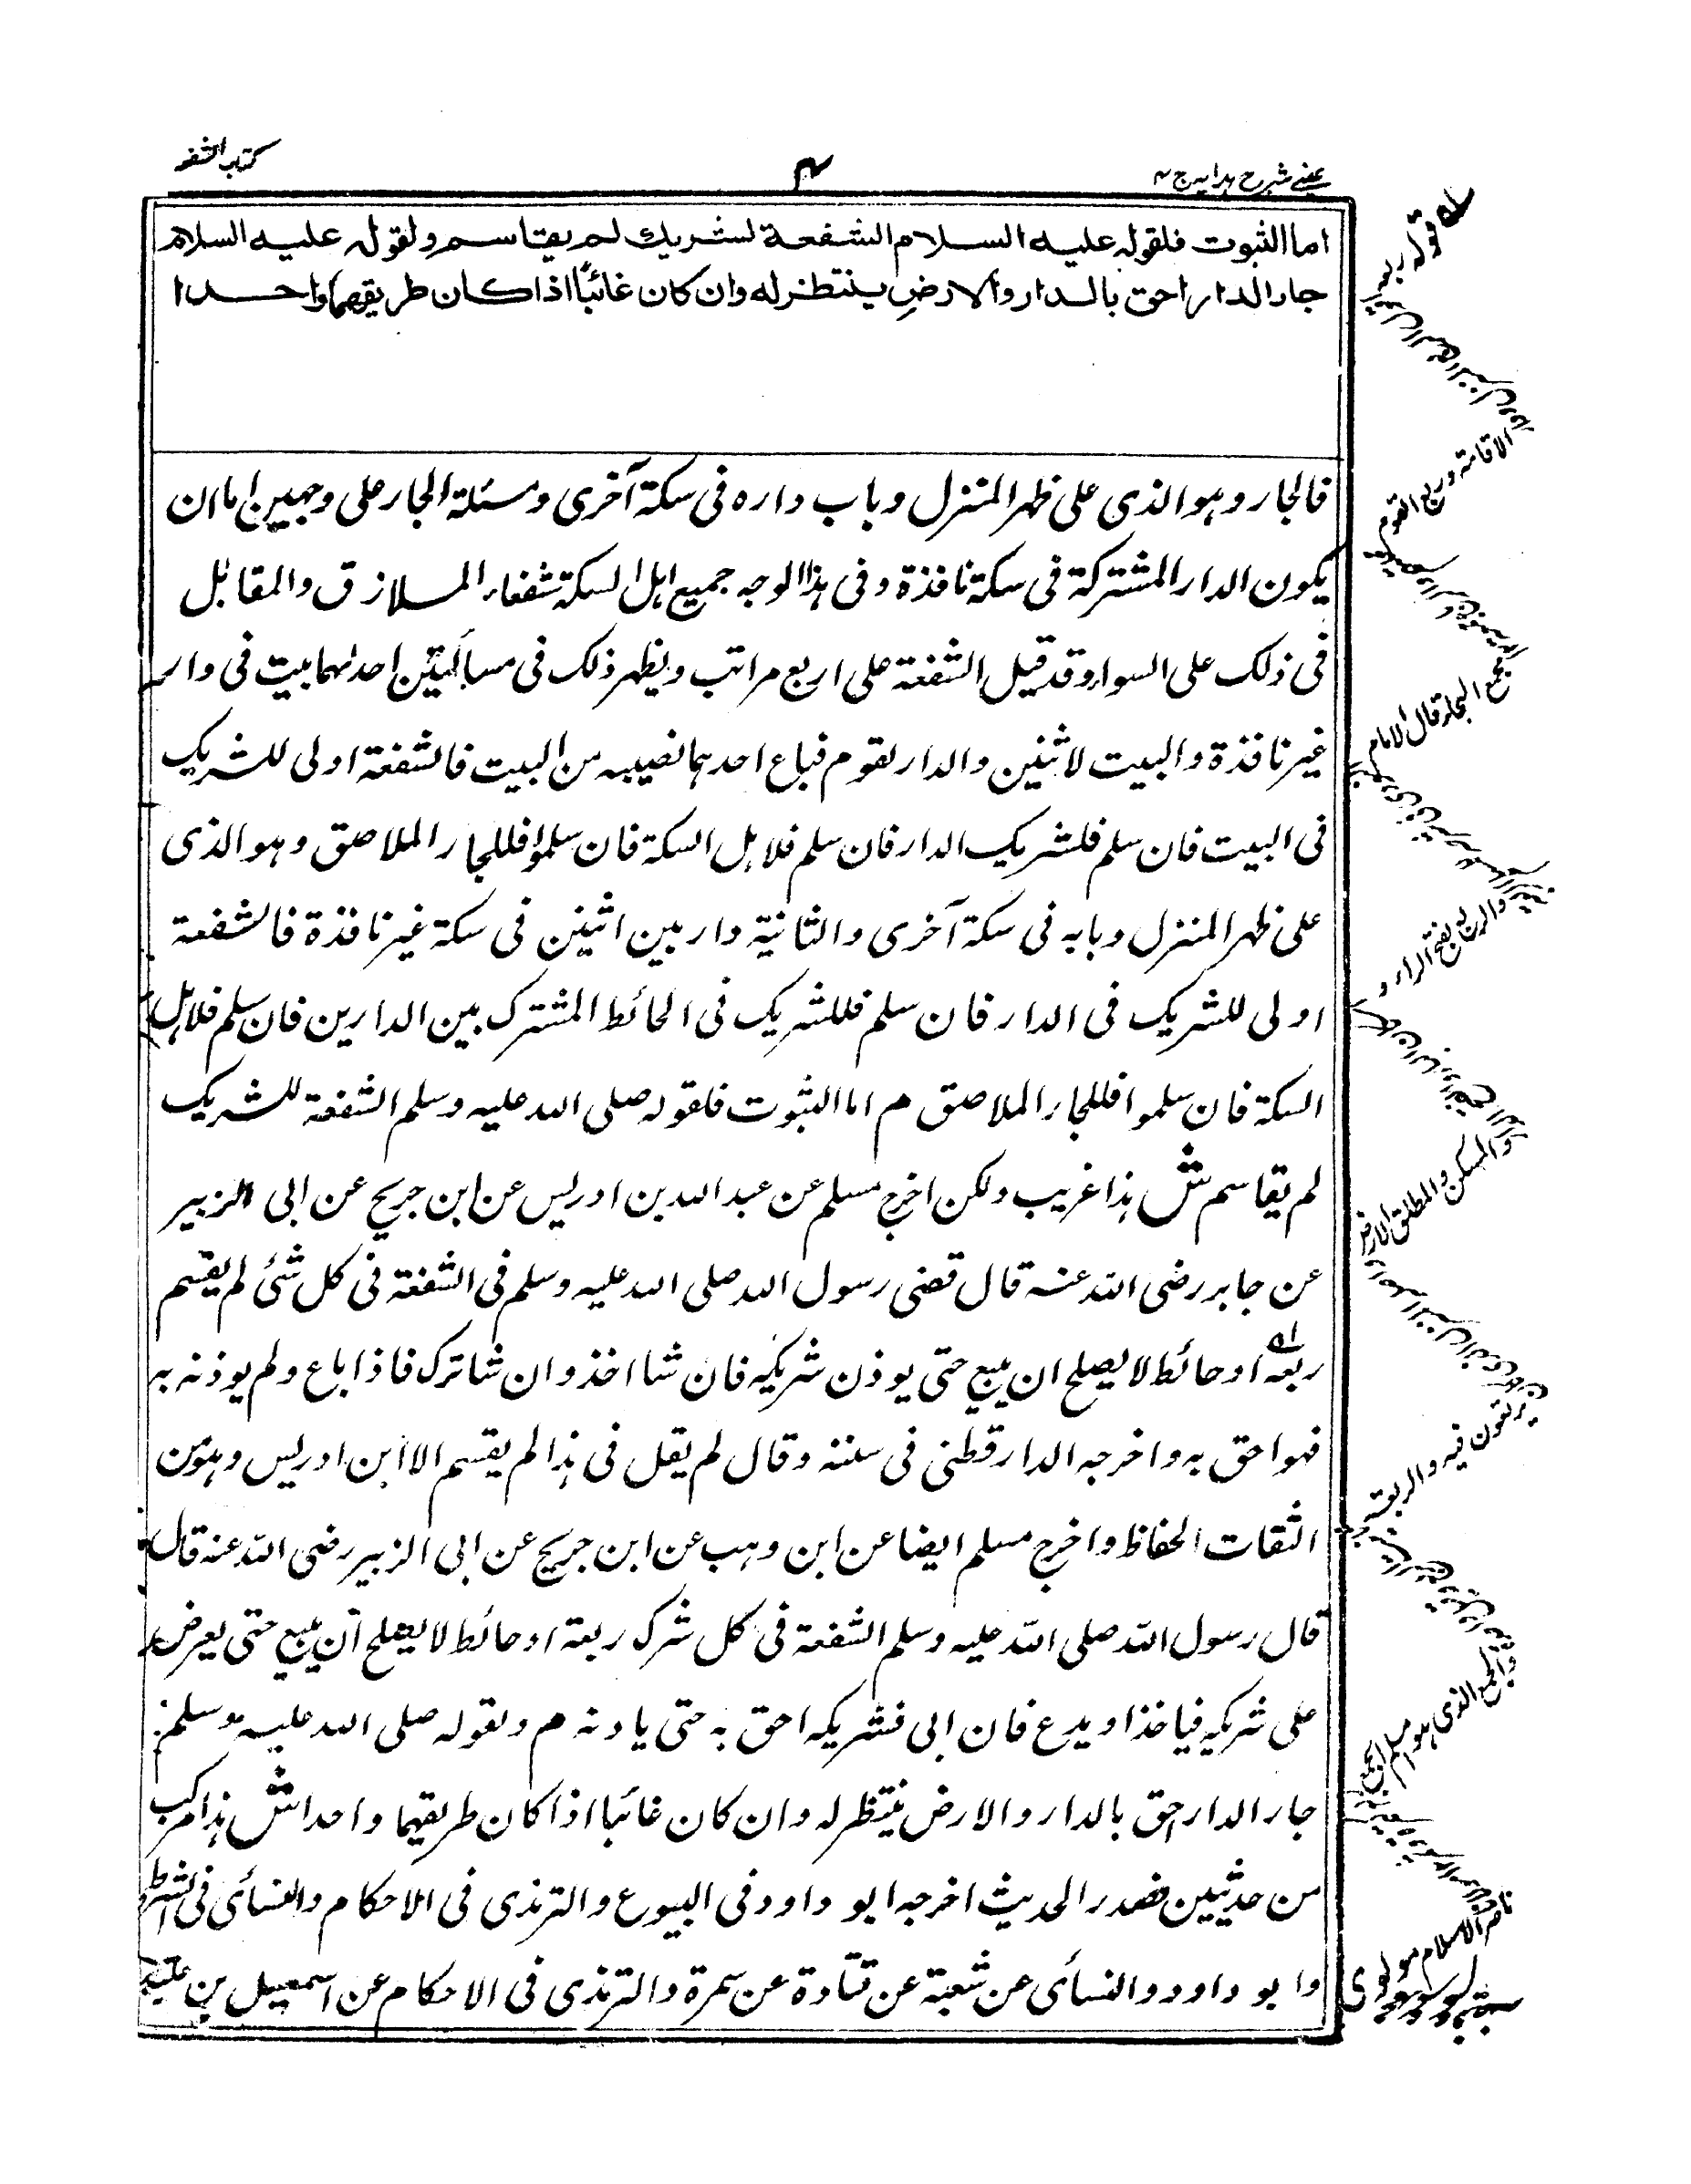 عینی شرح ہدایہ ج ۴
۴
کتاب الشفعہ
اما الثبوت فلقوله عليه السلام الشفعة لشريك لم يقاسم ولقوله عليه السلام
جار الدار احق بالدار والارض ينتظر له وان كان غائبا اذا كان طريقهما واحدا
فالجار وهو الذى على ظهر المنزل وباب داره فى سكة آخرى ومسئلة الجار على وجهين اما ان
يكون الدار المشتركة فى سكة نافذة وفى هذا الوجه جميع اهل السكة شفعاء الملازق والمقابل
فى ذلك على السواء وقد قيل الشفعة على اربع مراتب ويظهر ذلك فى مسألتين احدهما بيت فى دار
غير نافذة والبيت لاثنين والدار لقوم فباع احدهما نصيبه من البيت فالشفعة اولى للشريك
فى البيت فان سلم فلشريك الدار فان سلم فلاهل السكة فان سلموا فللجار الملاصق وهو الذى
على ظهر المنزل وبابه فى سكة آخرى والثانية دار بين اثنين فى سكة غير نافذة فالشفعة
اولى للشريك فى الدار فان سلم فللشريك فى الحائط المشترك بين الدارين فان سلم فلاهل
السكة فان سلموا فللجار الملاصق م اما الثبوت فلقوله صلى الله عليه وسلم الشفعة للشريك
لم يقاسم ش هذا غريب ولكن اخرج مسلم عن عبد الله بن ادريس عن ابن جريح عن ابى الزبير
عن جابر رضى الله عنه قال قضى رسول الله صلى الله عليه وسلم فى الشفعة فى كل شئ لم يقسم
ربعه او حائط لا يصلح ان يبيع حتى يوذن شريكه فان شا اخذ وان شا ترك فاذا باع ولم يوذنه به
فهو احق به واخرجه الدارقطنى فى سننه وقال لم يقل فى هذا لم يقسم الا ابن ادريس وهو من
الثقات الحفاظ واخرج مسلم ايضا عن ابن وهب عن ابن جريح عن ابى الزبير رضى الله عنه قال
قال رسول الله صلى الله عليه وسلم الشفعة فى كل شرك ربعة او حائط لا يصلح ان يبيع حتى يعرض
على شريكه فياخذ او يدع فان ابى فشريكه احق به حتى ياذنه م ولقوله صلى الله عليه وسلم
جار الدار احق بالدار والارض ينتظر له وان كان غائبا اذا كان طريقهما واحدا ش هذا مركب
من حديثين فصدر الحديث اخرجه ابو داود فى البيوع والترمذى فى الاحكام والنسائى فى الشرط
وابو داود والنسائى عن شعبة عن قتادة عن سمرة والترمذى فى الاحكام عن اسمعيل بن علية
له قوله ربعه
الاقامة وربع القوم
جمع البحار قال الامام
والربع بفتح الراء و
والمسكن والمطلق الارض
يرتعون فيه والربعة
الجمع الذى هو
ناصر الاسلام مولوى